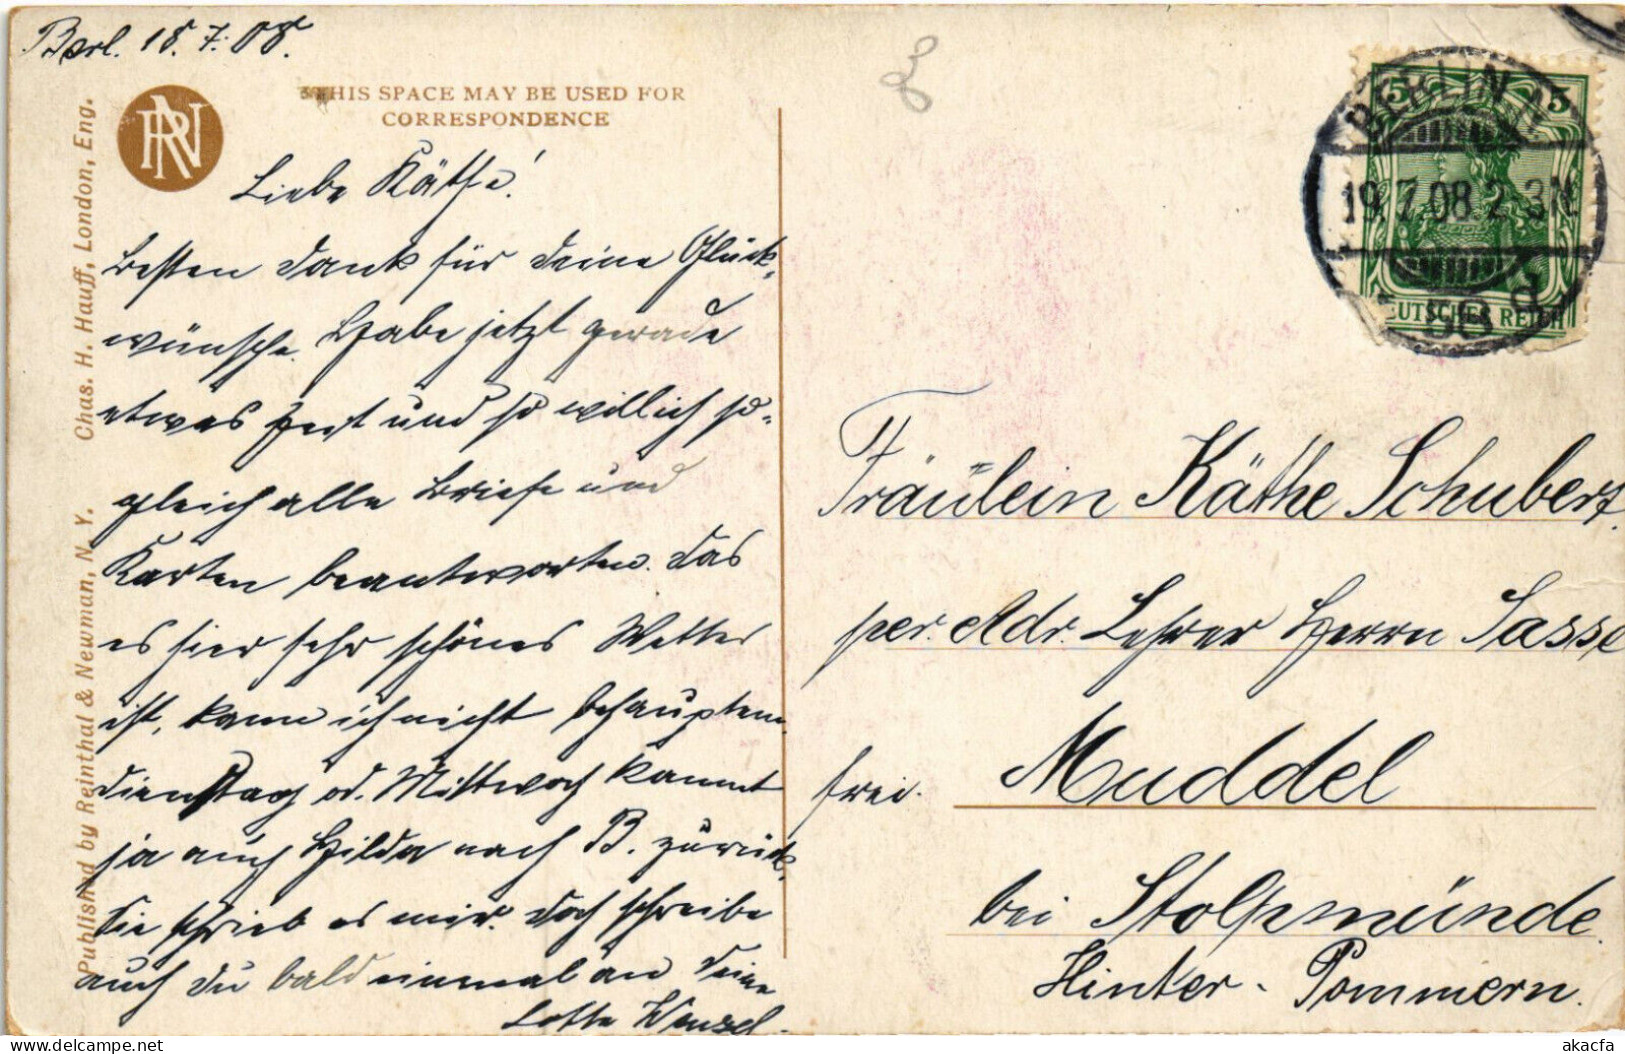 Berl. 18.7.08.
THIS SPACE MAY BE USED FOR
CORRESPONDENCE
RN
Chas. H. Hauff, London, Eng.
Published by Reinthal & Newman, N. Y.
Liebe Käthe!
Besten Dank für Deine Glück-
wünsche. Habe jetzt gerade
etwas Zeit und so will ich so-
gleich alle Briefe und
Karten beantworten. Das
es hier sehr schönes Wetter
ist, kann ich nicht behaupten.
Dienstag od. Mittwoch kommt
ja auch Hilda nach B. zurück,
sie schrieb es mir. Doch schreibe
auch Du bald einmal an Deine
Lotte Wenzel.
BERLIN
19.7.08.2-3N
58 d
5 5
DEUTSCHES REICH
Fräulein Käthe Schubert.
per. Adr. Lehrer Herrn Sasse
Muddel
frei.
bei Stolpmünde.
Hinter-Pommern.
akacfa